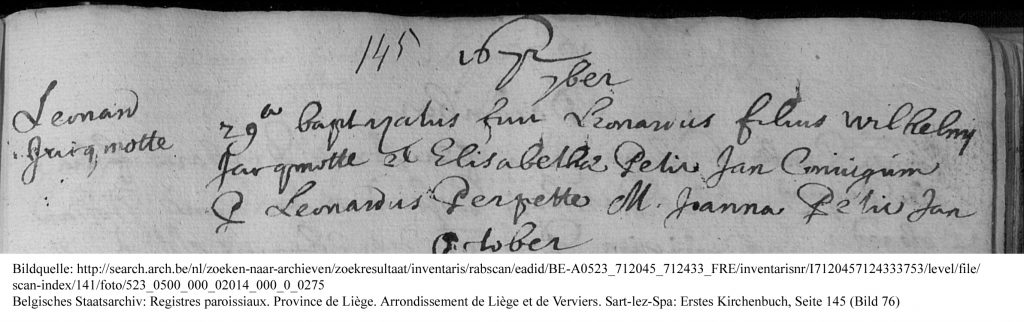 145 1672
7ber
Leonard
Jacqmotte
29a baptizatus fuit Leonardus filius Wilhelmi
Jacqmotte et Elisabetha Petit Jan Coniugum
P Leonardus Perpette M. Joanna Petit Jan
October
Bildquelle: http://search.arch.be/nl/zoeken-naar-archieven/zoekresultaat/inventaris/rabscan/eadid/BE-A0523_712045_712433_FRE/inventarisnr/I7120457124333753/level/file/
scan-index/141/foto/523_0500_000_02014_000_0_0275
Belgisches Staatsarchiv: Registres paroissiaux. Province de Liège. Arrondissement de Liège et de Verviers. Sart-lez-Spa: Erstes Kirchenbuch, Seite 145 (Bild 76)